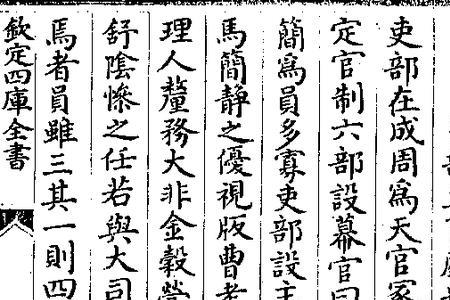 吏部在成周為天官冢
定官制六部設幕官曰
簡為員多寡吏部設主
馬簡靜之優視版曹者
理人釐務大非金穀營
舒陰慘之任若與大司
焉者員雖三其一則四
欽定四庫全書